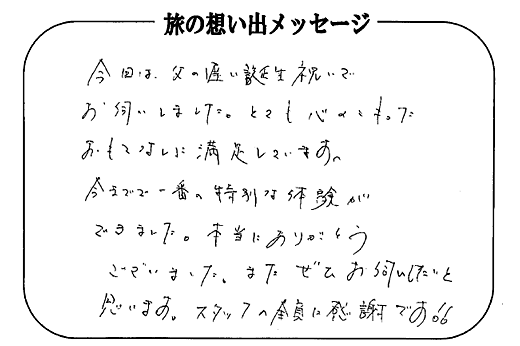 旅の想い出メッセージ
今回は、父の遅い誕生祝いで
お伺いしました。とても心のこもった
おもてなしに満足しています。
今までで一番の特別な体験が
できました。本当にありがとう
ございました。また ぜひ お伺いしたいと
思います。スタッフの全員に感謝です。